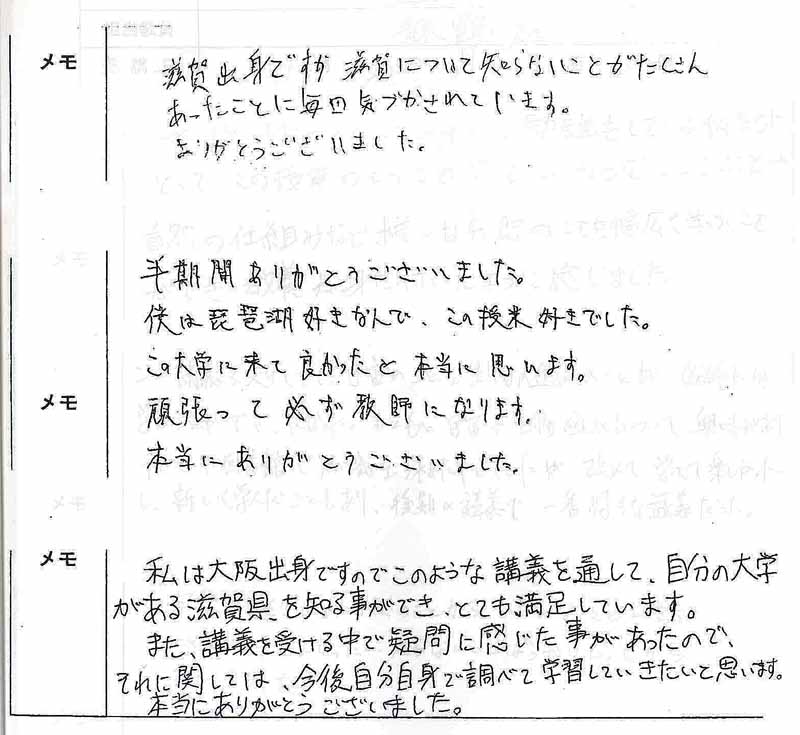 メモ
滋賀出身ですが 滋賀について知らないことがたくさん
あったことに毎回気づかされています。
ありがとうございました。
半期間ありがとうございました。
僕は琵琶湖好きなんで、この授業好きでした。
この大学に来て良かったと本当に思います。
メモ
頑張って必ず教師になります。
本当にありがとうございました。
メモ
私は大阪出身ですのでこのような講義を通して、自分の大学
がある滋賀県を知る事ができ、とても満足しています。
また、講義を受ける中で疑問に感じた事があったので、
それに関しては、今後自分自身で調べて学習していきたいと思います。
本当にありがとうございました。